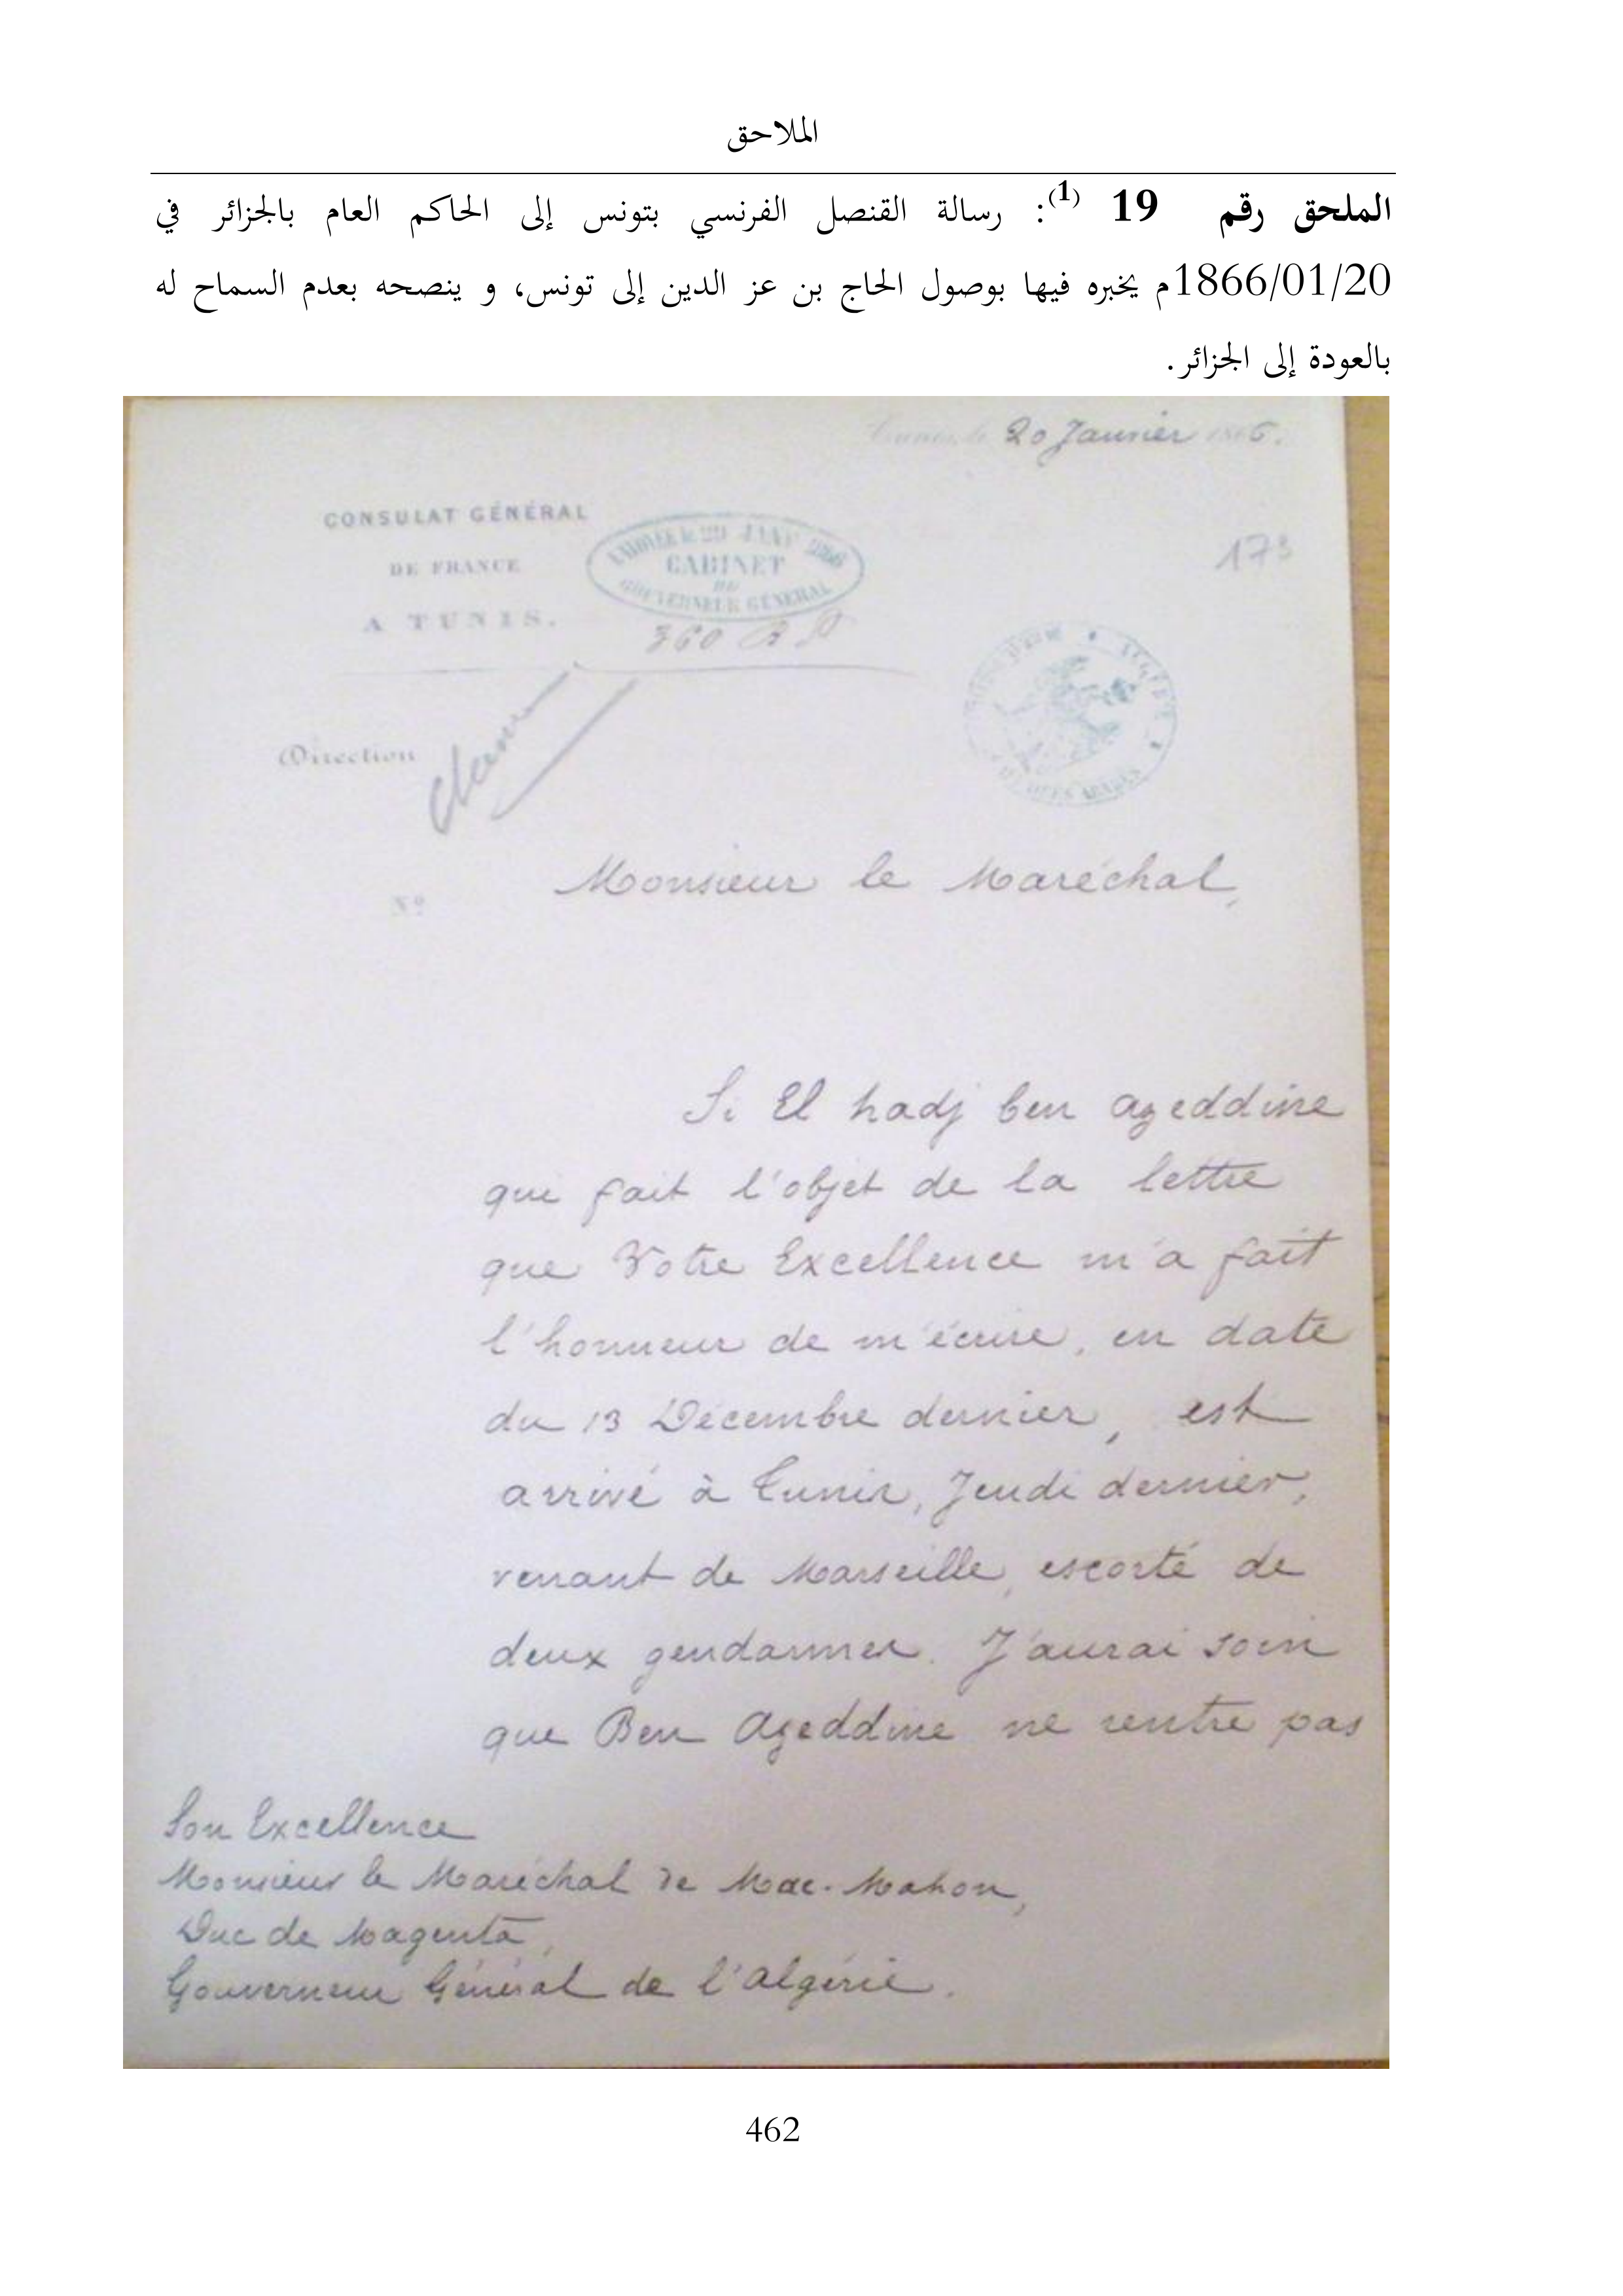 الملاحق
الملحق رقم 19 (1): رسالة القنصل الفرنسي بتونس إلى الحاكم العام بالجزائر في
1866/01/20م يخبره فيها بوصول الحاج بن عز الدين إلى تونس، و ينصحه بعدم السماح له
بالعودة إلى الجزائر.
Tunis, le 20 Janvier 1866.
CONSULAT GÉNÉRAL
DE FRANCE
A TUNIS.
29 JANV 1866
CABINET
DU
GOUVERNEUR GÉNÉRAL
360
173
ALGÉRIE
ARABES
Direction
Nº
Monsieur le Maréchal,
Si El hadj ben Azeddine
qui fait l'objet de la lettre
que Votre Excellence m'a fait
l'honneur de m'écrire, en date
du 13 Décembre dernier, est
arrivé à Tunis, Jeudi dernier,
venant de Marseille, escorté de
deux gendarmes. J'aurai soin
que Ben Azeddine ne rentre pas
Son Excellence
Monsieur le Maréchal de Mac-Mahon,
Duc de Magenta,
Gouverneur Général de l'Algérie.
462